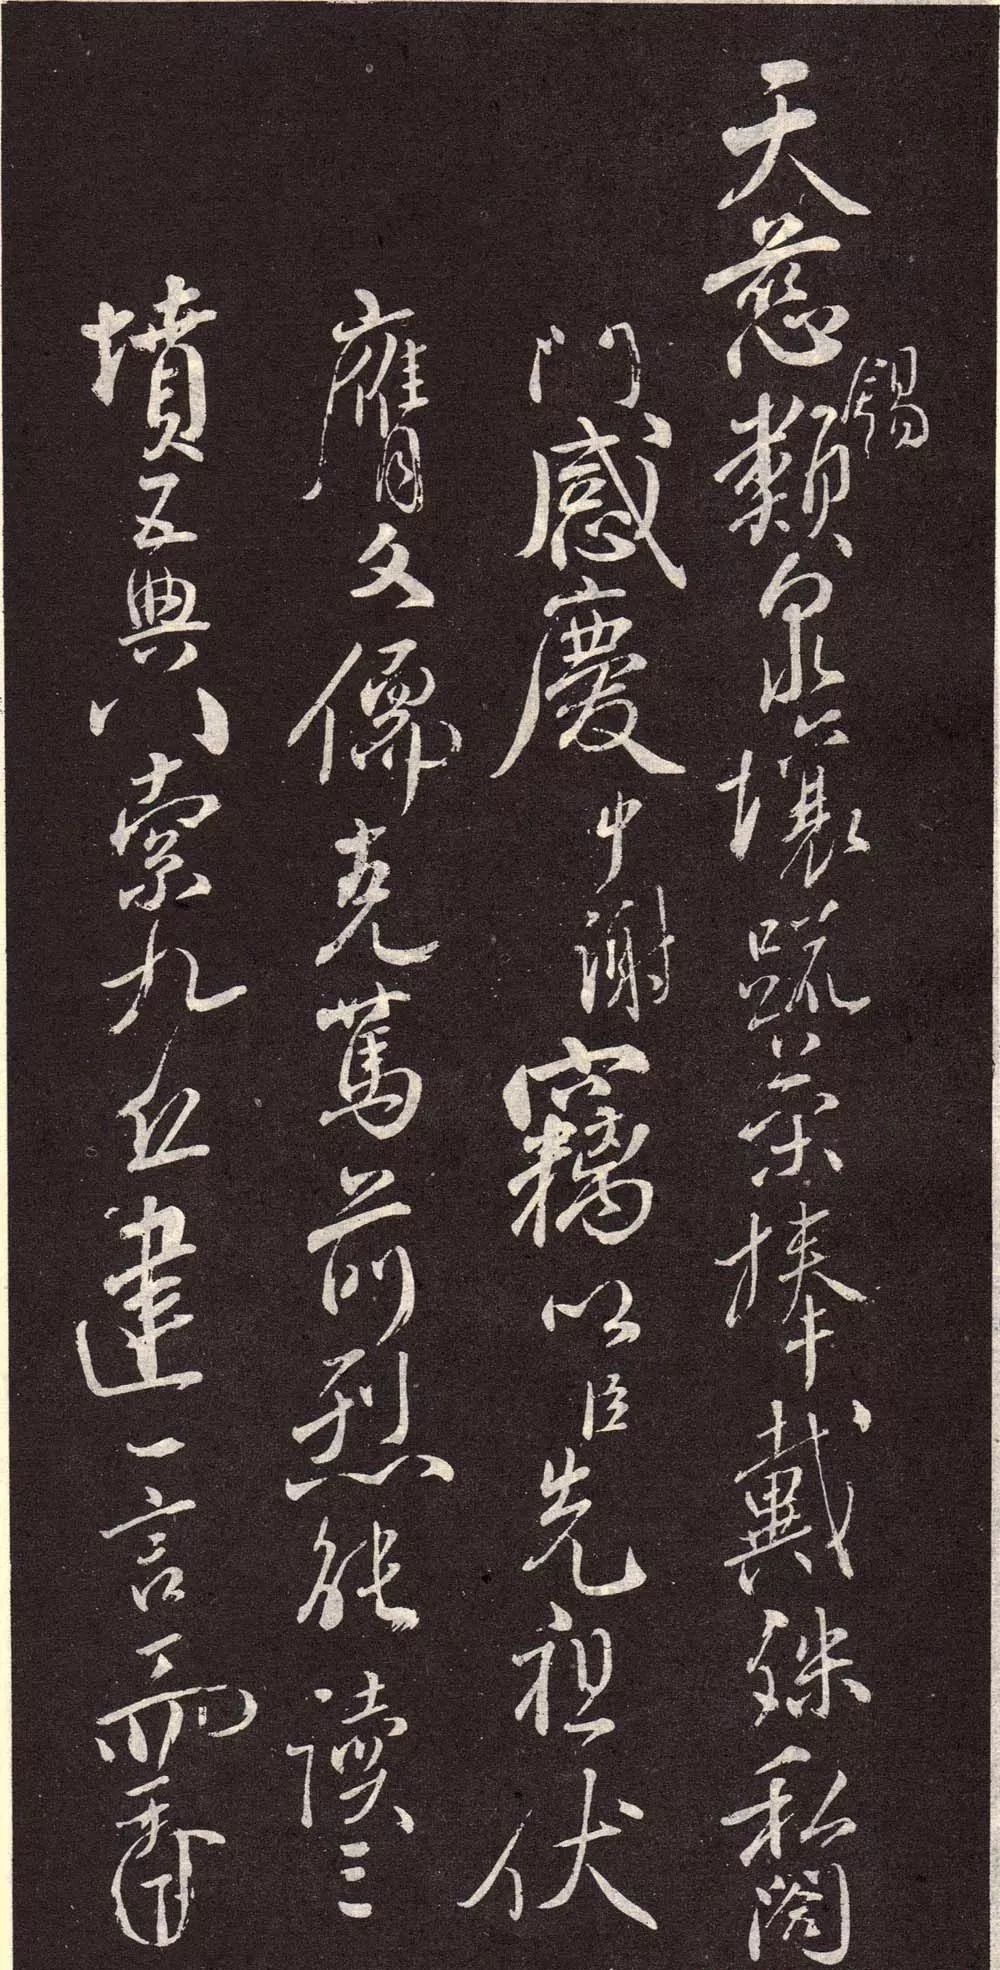 天慈錫類泉壤疏榮捧戴殊私闔
門感慶中謝竊以臣先祖伏
膺文儒克篤前烈能讀三
墳五典八索九丘建一言而